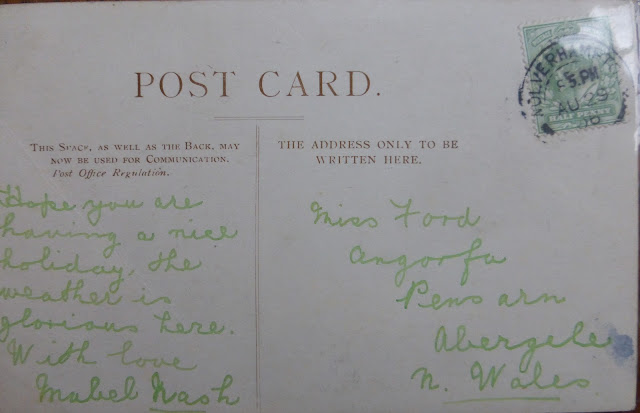 POST CARD.
THIS SPACE, AS WELL AS THE BACK, MAY
NOW BE USED FOR COMMUNICATION.
Post Office Regulation.
Hope you are
having a nice
holiday, the
weather is
glorious here.
With love
Mabel Nash
THE ADDRESS ONLY TO BE
WRITTEN HERE.
Miss Ford
Angorfa
Pensarn
Abergele
N. Wales
5 PM
AU 25
HALF PENNY